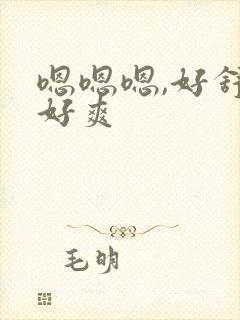 嗯嗯嗯,好舒
好爽
毛明